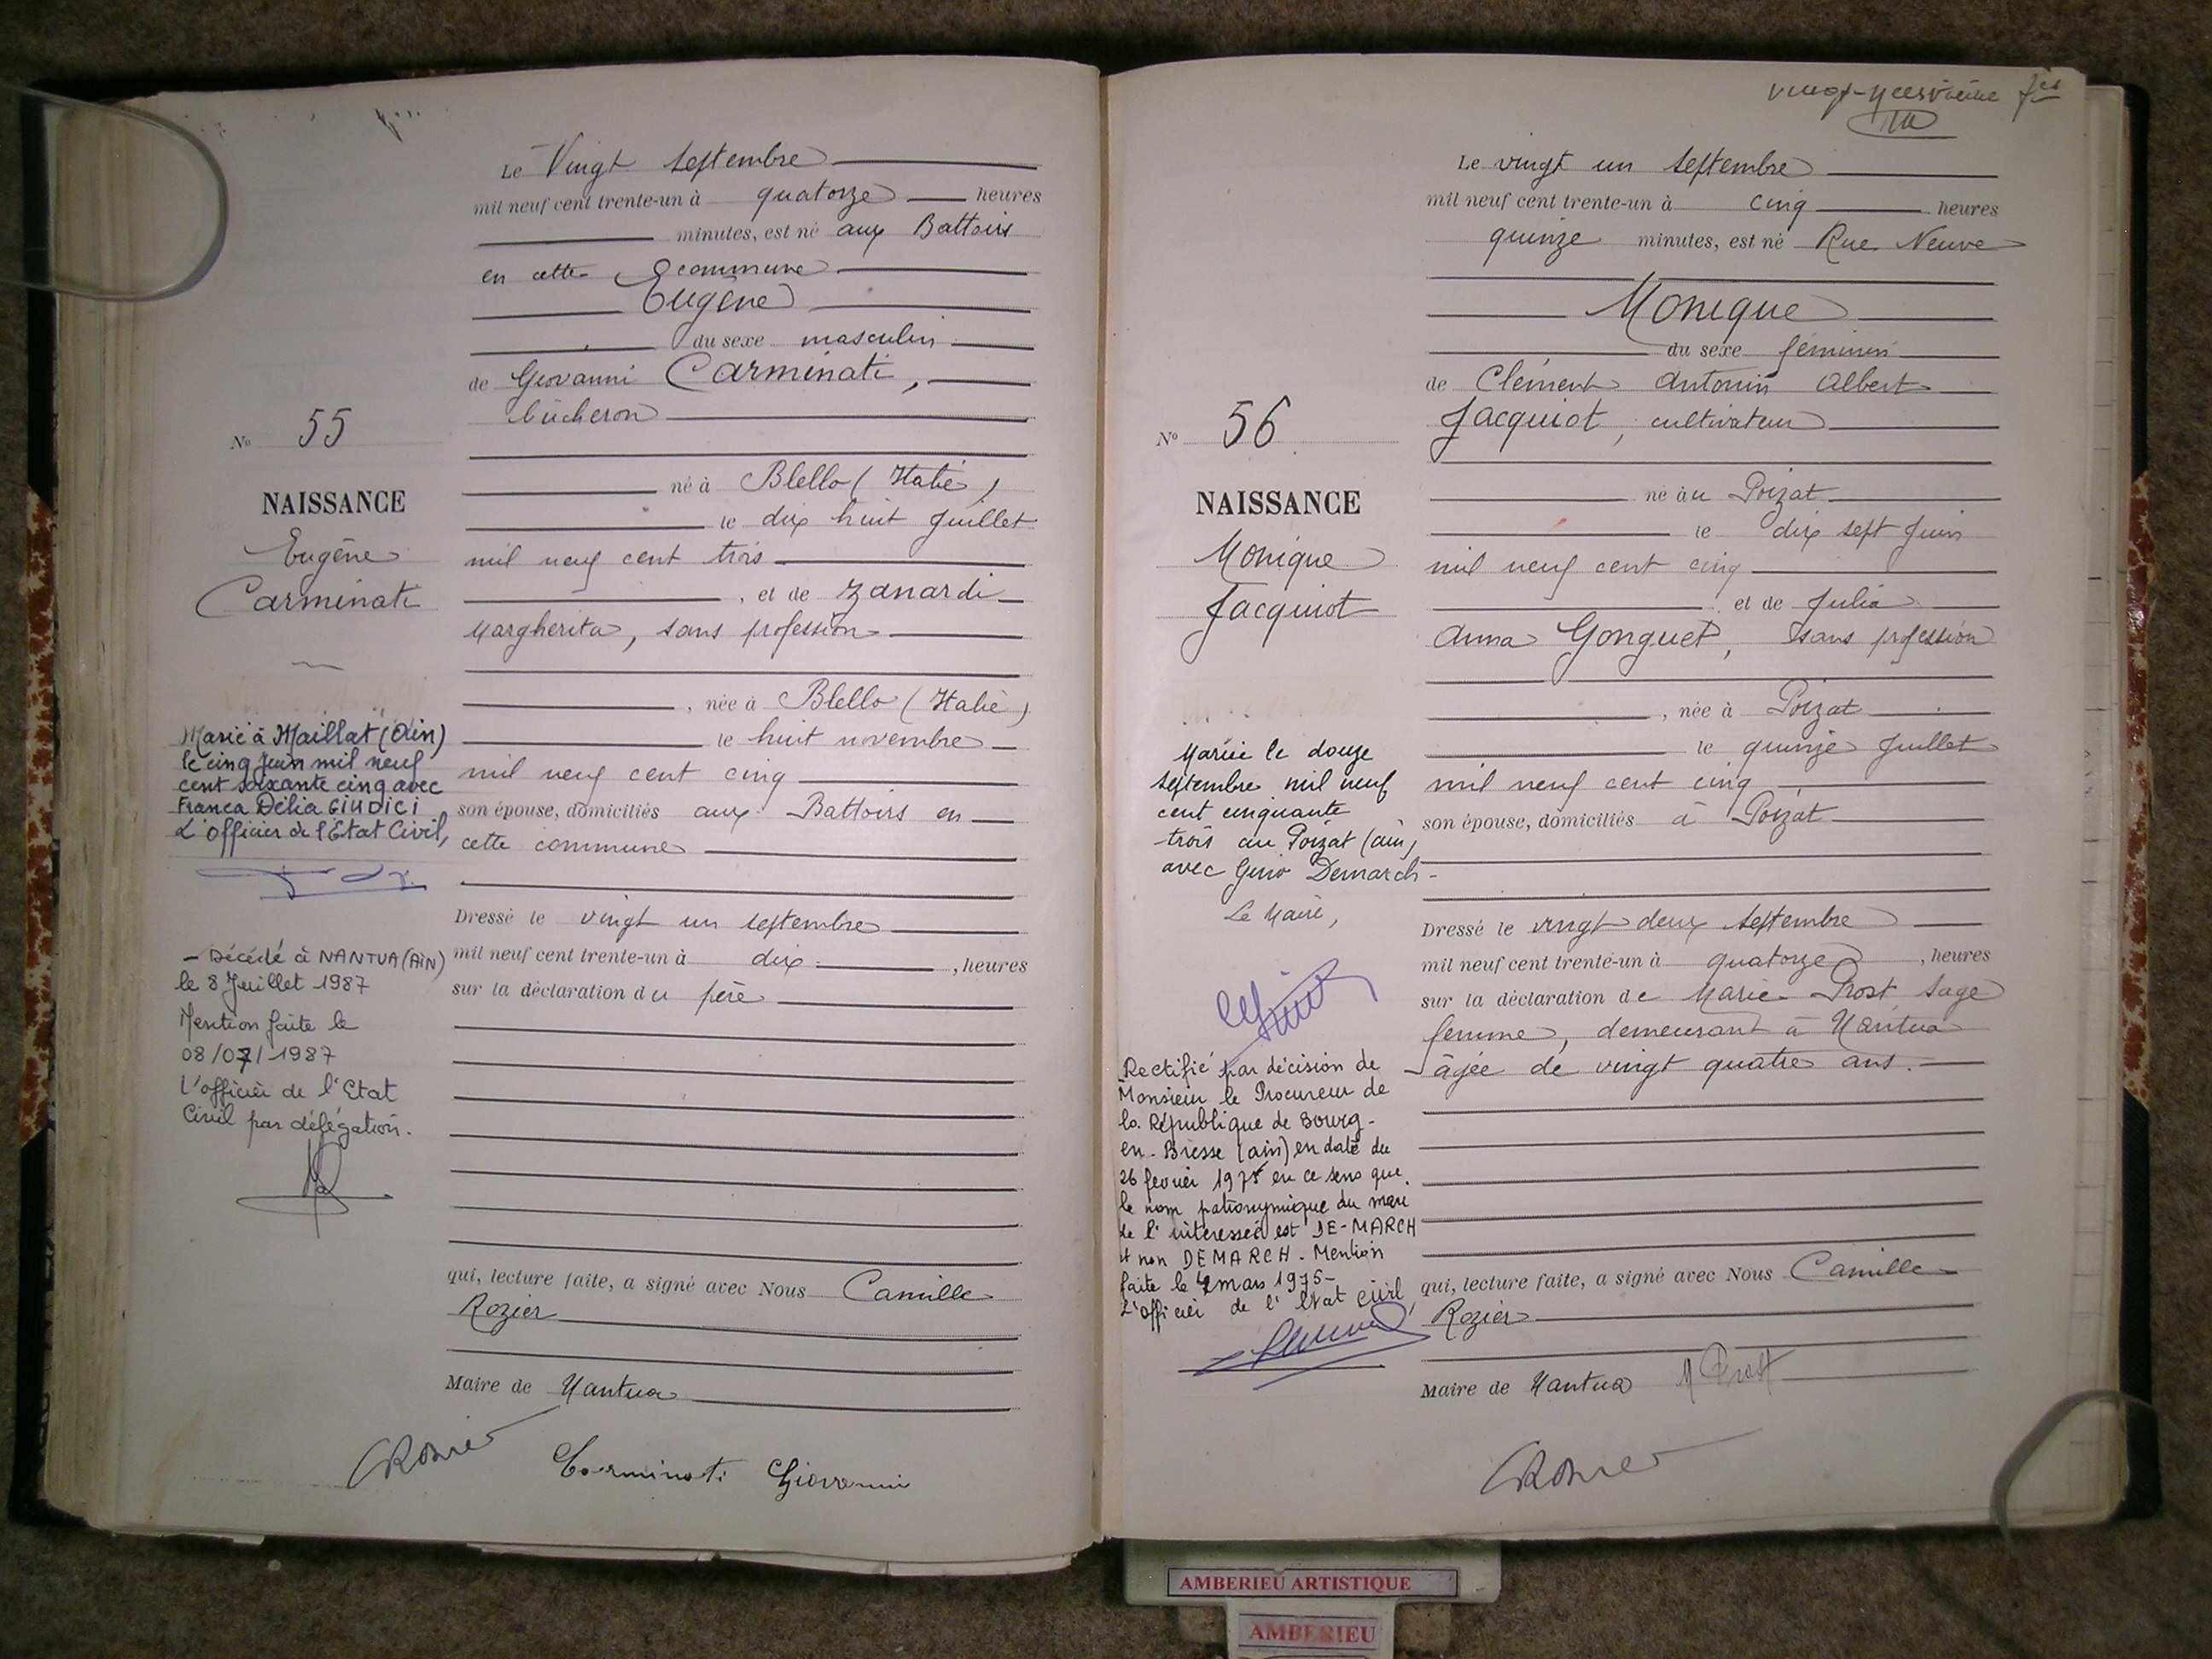 Le Vingt septembre
mil neuf cent trente-un à quatorze heures
minutes, est né aux Battoirs
en cette commune
Eugène
du sexe masculin
de Giovanni Carminati,
bûcheron
N° 55
NAISSANCE
Eugène
Carminati
né à Blello (Italie)
le dix huit Juillet
mil neuf cent trois
, et de Zanardi
Margherita, sans profession
, née à Blello (Italie)
le huit novembre
mil neuf cent cinq
son épouse, domiciliés aux Battoirs en
cette commune
Marié à Maillat (Ain)
le cinq juin mil neuf
cent soixante cinq avec
Franca Délia GIUDICI
L'officier de l'Etat Civil,
Dressé le vingt un septembre
mil neuf cent trente-un à dix , heures
sur la déclaration du père
- Décédé à NANTUA (AIN)
le 8 Juillet 1987
Mention faite le
08/07/1987
L'officier de l'Etat
Civil par délégation.
qui, lecture faite, a signé avec Nous Camille
Rozier
Maire de Nantua
CRozier Carminati Giovanni
vingt-neuvième
Le vingt un septembre
mil neuf cent trente-un à cinq heures
quinze minutes, est né Rue Neuve
Monique
du sexe féminin
de Clément Antonin Albert
Jacquiot, cultivateur
N° 56
NAISSANCE
Monique
Jacquiot
né au Poizat
le dix sept Juin
mil neuf cent cinq
et de Julia
Anna Gonguet, sans profession
, née à Poizat
le quinze Juillet
mil neuf cent cinq
son épouse, domiciliés à Poizat
Mariée le douze
septembre mil neuf
cent cinquante
trois au Poizat (ain)
avec Gino Demarch-
Le Maire,
Dressé le vingt deux septembre
mil neuf cent trente-un à quatorze , heures
sur la déclaration de Marie Prost sage
femme, demeurant à Nantua
âgée de vingt quatre ans.
Rectifié par décision de
Monsieur le Procureur de
la République de Bourg-
en-Bresse (ain) en date du
26 fevrier 1975 en ce sens que
le nom patronymique du mari
de l'intéressée est DE-MARCH
et non DEMARCH - Mention
faite le 4 mars 1975-
L'officier de l'Etat Civil
qui, lecture faite, a signé avec Nous Camille
Rozier
Maire de Nantua M Prost
CRozier
AMBERIEU ARTISTIQUE
AMBERIEU